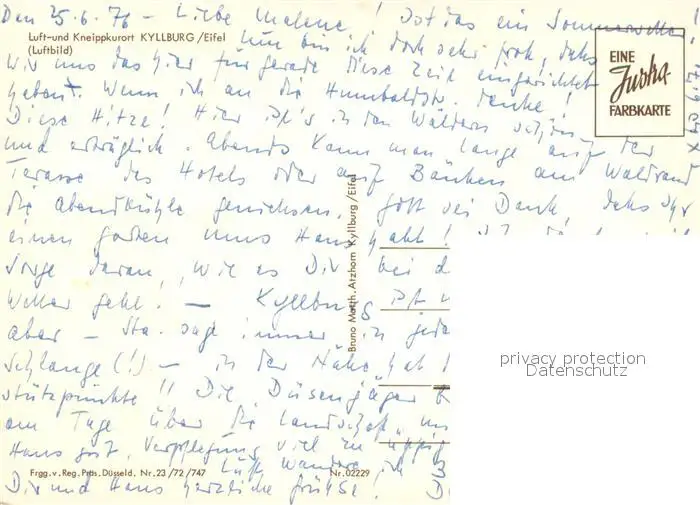 Den 25.6.76 – Liebe Malene! Ist das ein Sommerwetter!
Luft-und Kneippkurort KYLLBURG/Eifel
(Luftbild)
Nun bin ich doch sehr froh, dass
wir uns das hier für gerade diese Zeit eingerichtet
haben. Wenn ich an die Humboldtstr. denke!
Diese Hitze! Hier ist's in den Wäldern schön
und erträglich. Abends kann man lange auf der
Terasse des Hotels oder auf Bänken am Waldrand
die Abendkühle geniessen. Gott sei Dank, dass Ihr
einen Garten ums Haus habt!
Sorge daran, wie es Dir bei d
Wetter geht. – Kyllburg ist
aber – sage immer in jede
Schlange (!) – in der Nähe hat
stützpunkte!! Die Düsenjäger
am Tage über die Landschaft,
Haus gut, Verpflegung viel zu üppig
Lust wandere ich 3
Dir und Hans herzliche Grüsse! D
EINE
Jurka-
FARBKARTE
Bruno Marth. Atzhorn Kyllburg/Eifel
privacy protection
Datenschutz
Frgg.v.Reg.Präs.Düsseld. Nr.23/72/747
Nr.02229